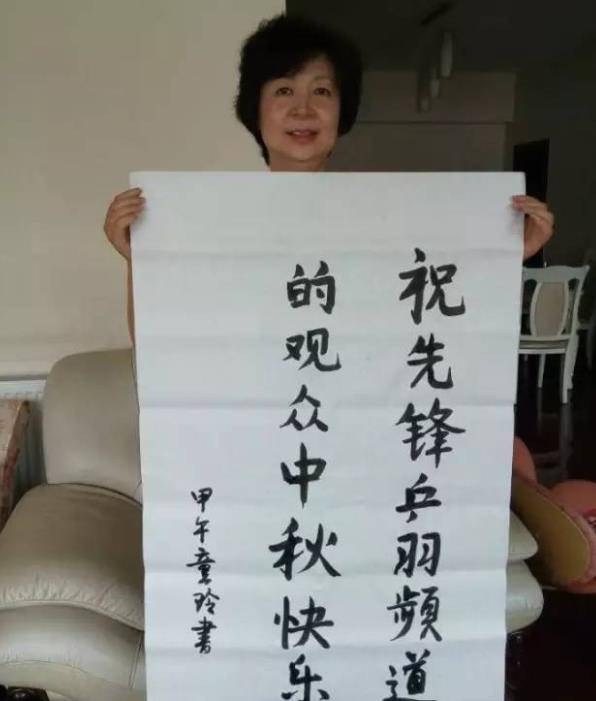 祝先锋乒羽頻道
的观众中秋快乐
甲午童玲書